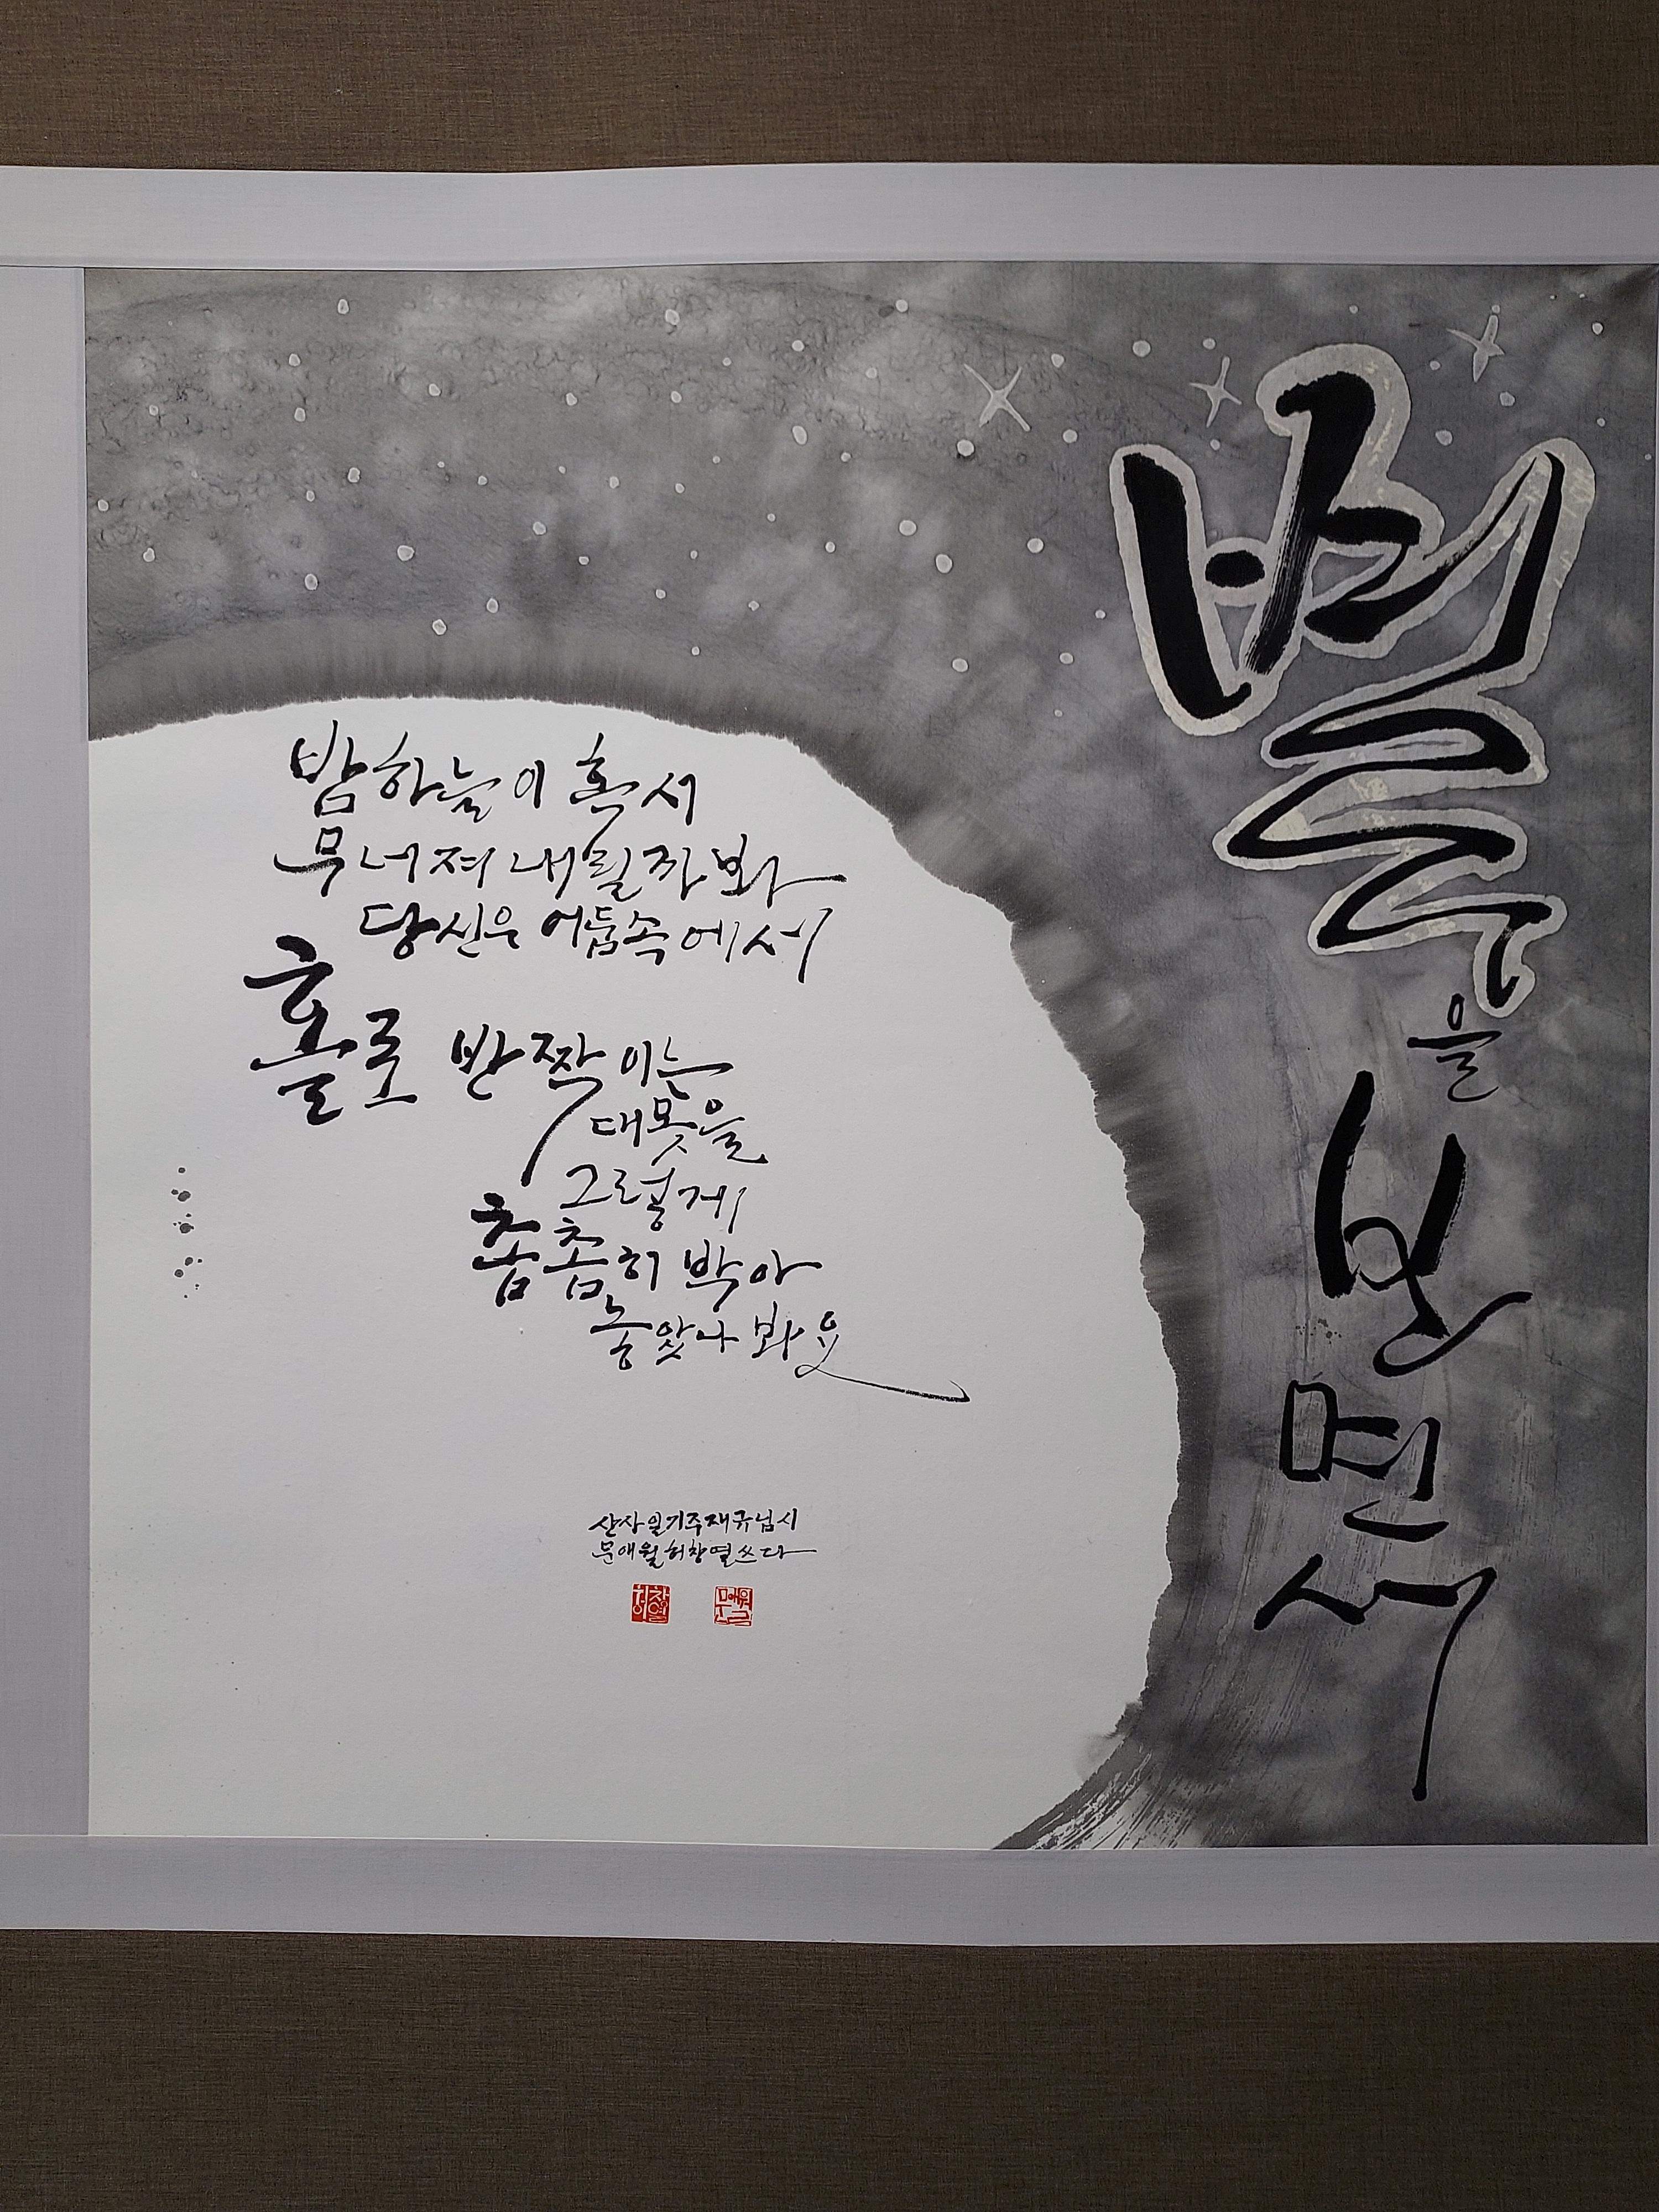 별들을 보면서
밤하늘이 혹시
무너져 내릴까봐
당신은 어둠속에서
홀로 반짝이는
대못을
그렇게
촘촘히 박아
놓았나 봐요
산사일기 주재규님 시
문애월 허창열 쓰다
허창열
문애월